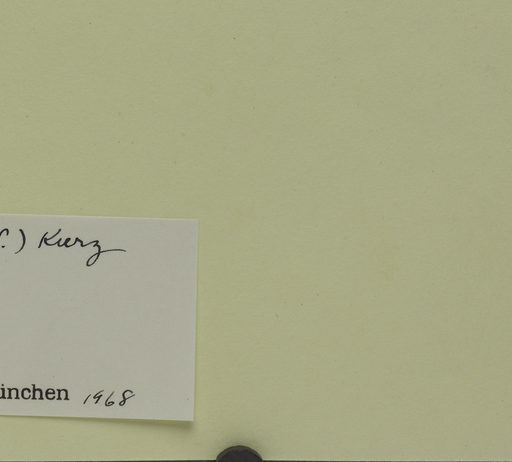 f.) Kurz
ünchen 1968